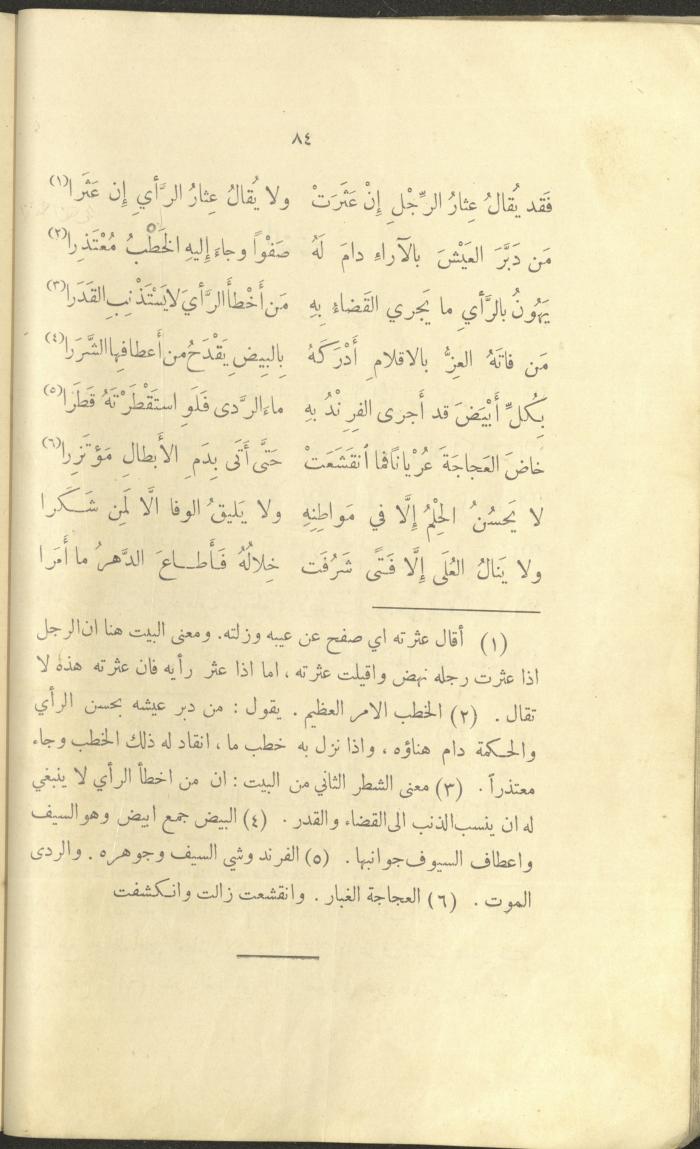 ٨٤
فَقد يُقالُ عِثارُ الرِّجْلِ إِنْ عَثَرَتْ ولا يُقالُ عِثارُ الرَّأيِ إِن عَثَرا(١)
مَن دَبَّرَ العَيْشَ بالآراءِ دامَ لَهُ صَفْواً وجاءَ إِليهِ الخَطْبُ مُعْتَذِرا(٢)
يَهُونُ بالرَّأيِ ما يَجري القَضاءُ بِهِ مَن أَخْطأَ الرَّأيَ لا يَسْتَذْنِبِ القَدَرا(٣)
مَن فاتَهُ العِزُّ بالاقلامِ أَدْرَكَهُ بِالبِيضِ يَقْدَحُ من أَعطافِها الشَّرَرا(٤)
بِكُلِّ أَبْيَضَ قد أَجرى الفِرِنْدُ بِهِ ماءَ الرَّدى فَلَوِ استَقْطَرْتَهُ قَطَرا(٥)
خاضَ العَجاجَةَ عُرْياناً فما ٱنقَشَعَتْ حَتَّى أَتَى بِدَمِ الأَبطالِ مُؤتَزِرا(٦)
لا يَحسُنُ الحِلْمُ إِلَّا في مَواطِنِهِ ولا يَليقُ الوفا الَّا لَمِن شَكَرا
ولا يَنالُ العُلَى إِلَّا فَتًى شَرُفَت خِلالُهُ فَأَطاعَ الدَّهرُ ما أَمَرا
(١) أقال عثرته اي صفح عن عيبه وزلته. ومعنى البيت هنا ان الرجل
اذا عثرت رجله نهض واقيلت عثرته ، اما اذا عثر رأيه فان عثرته هذه لا
تقال . (٢) الخطب الامر العظيم . يقول : من دبر عيشه بحسن الرأي
والحكمة دام هناؤه ، واذا نزل به خطب ما ، انقاد له ذلك الخطب وجاء
معتذراً . (٣) معنى الشطر الثاني من البيت : ان من اخطأ الرأي لا ينبغي
له ان ينسب الذنب الى القضاء والقدر . (٤) البيض جمع ابيض وهو السيف
واعطاف السيوف جوانبها . (٥) الفرند وشي السيف وجوهره . والردى
الموت . (٦) العجاجة الغبار . وانقشعت زالت وانكشفت